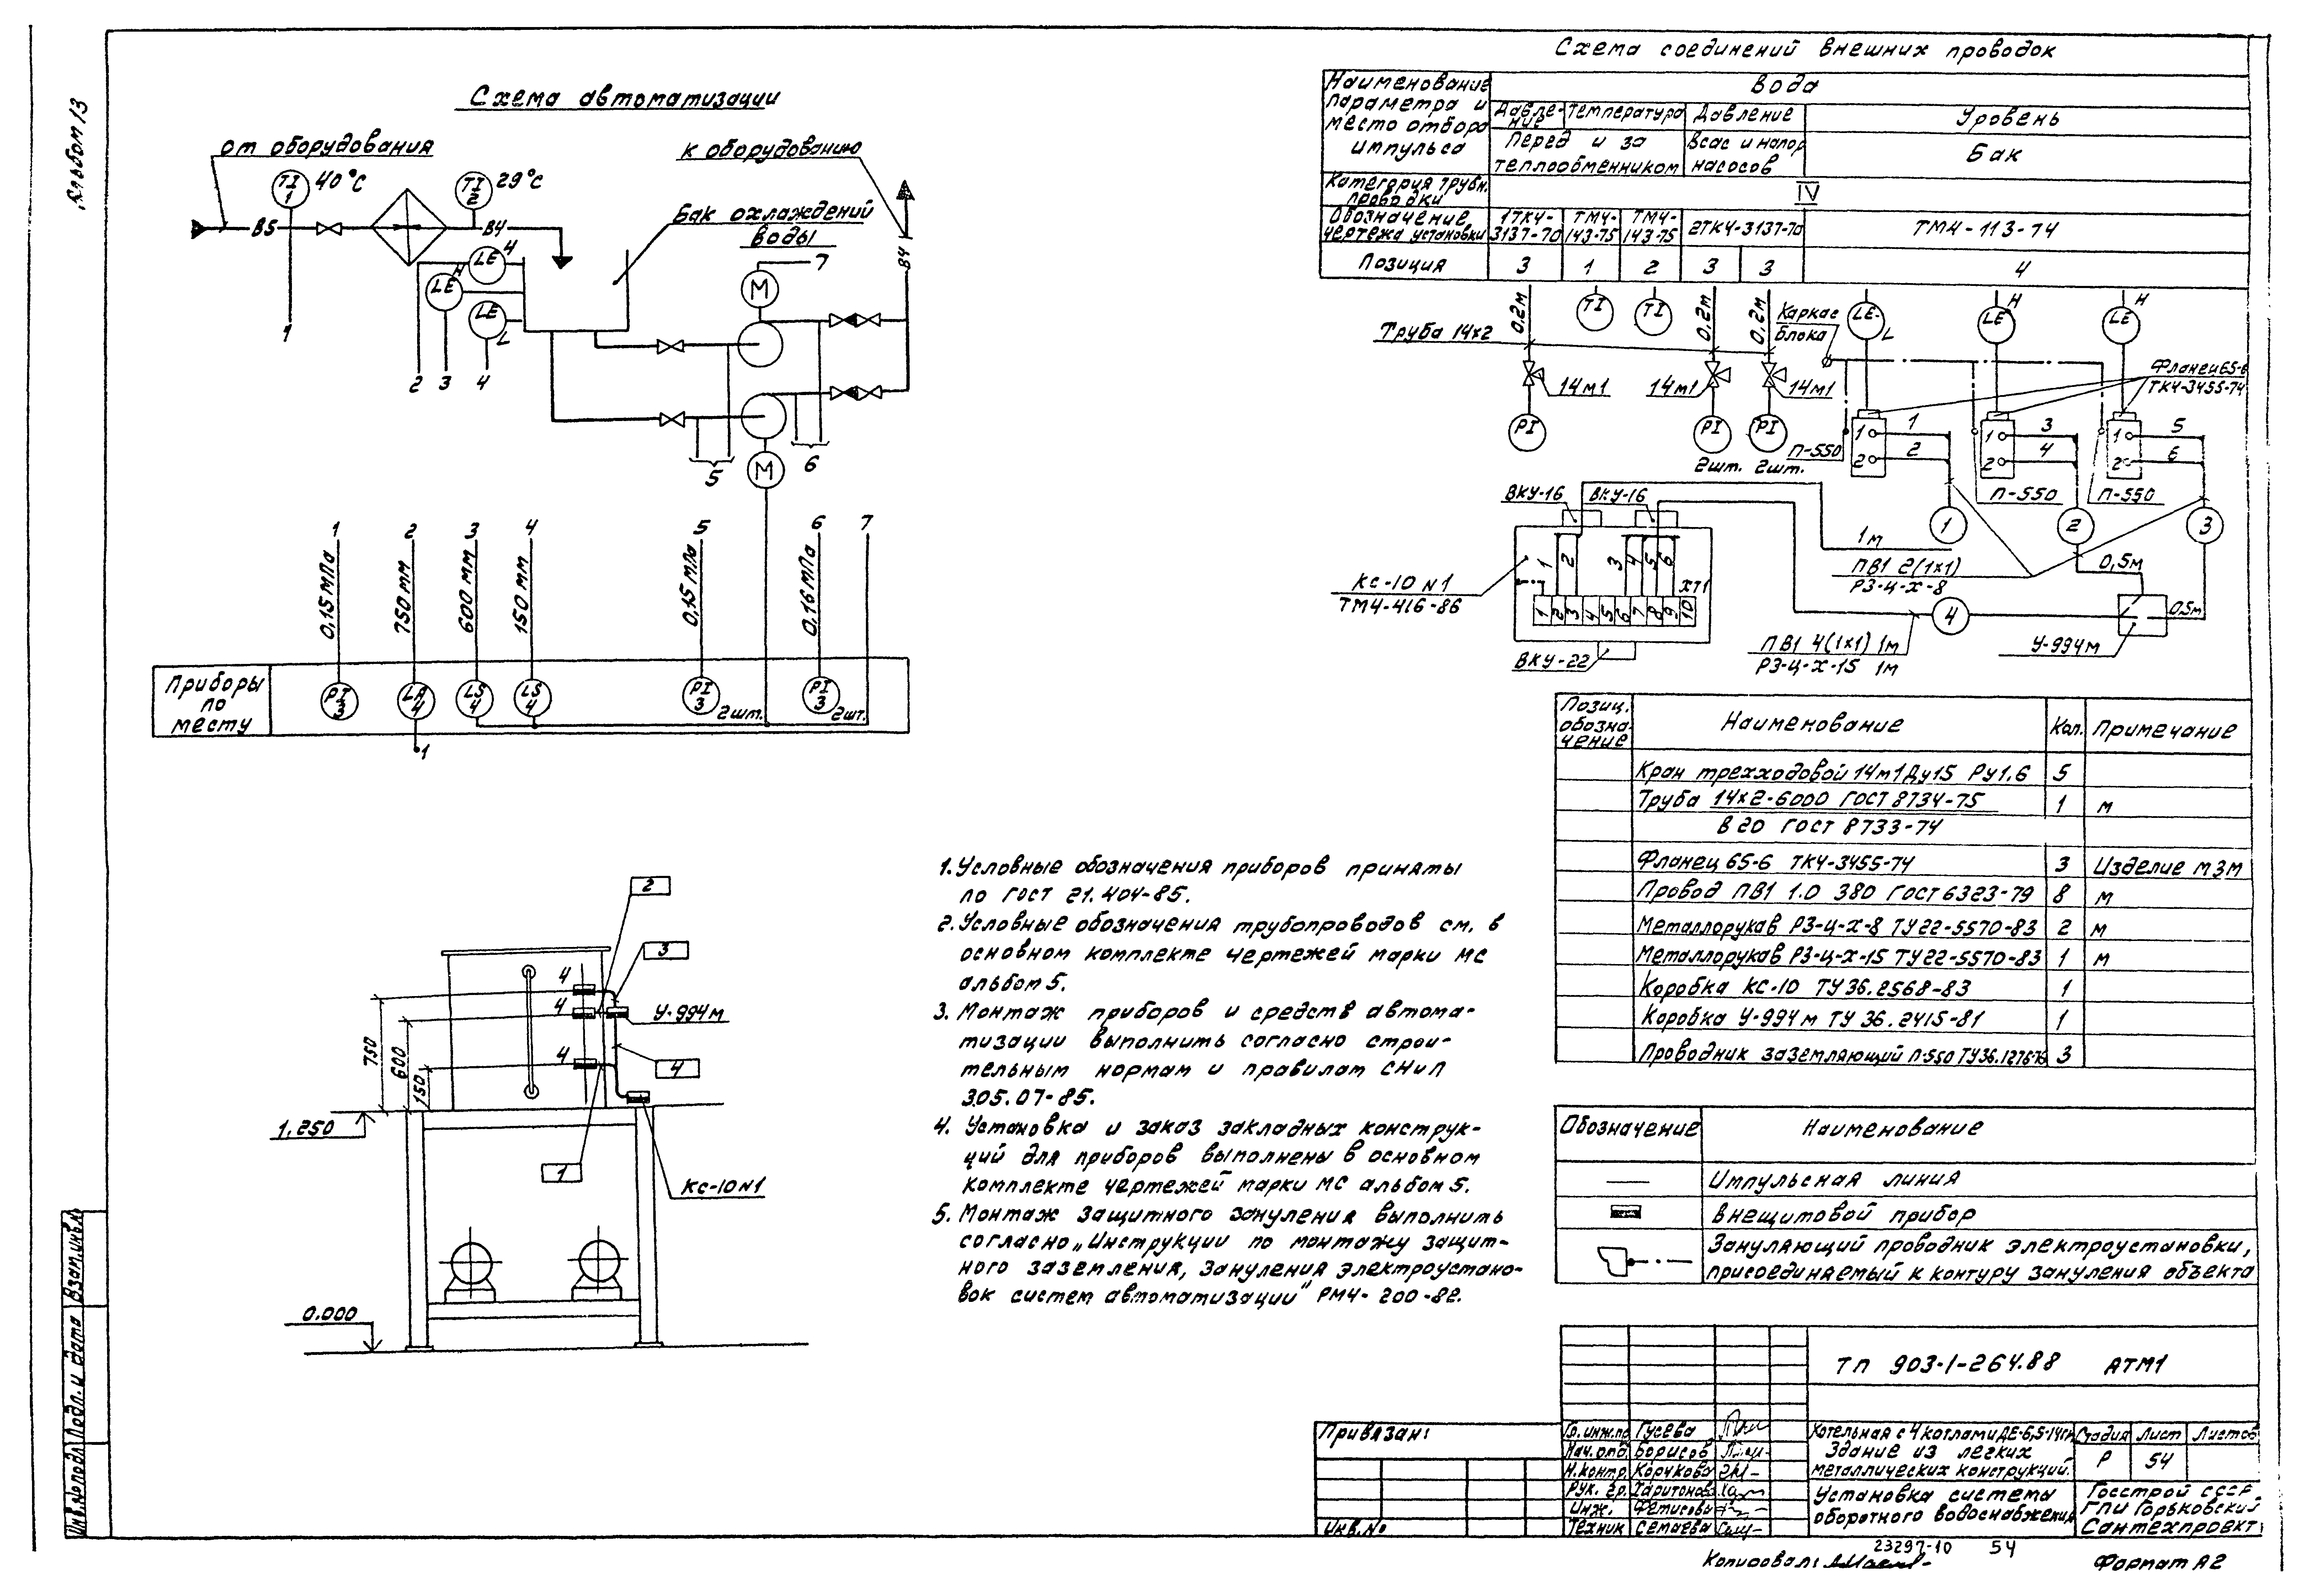 Альбом 13
Схема автоматизации
от оборудования
TI
1
40°С
TI
2
29°С
к оборудованию
В5
В4
В4
Бак охлажденй
воды
LE
4
LE
H
LE
L
M
7
M
1
2
3
4
5
6
1
2
3
4
5
6
7
0,15 мПа
750 мм
600 мм
150 мм
0,15 мПа
0,16 мПа
Приборы
по
месту
PI
3
LA
4
LS
4
LS
4
PI
3
2шт.
PI
3
2шт.
1
2
3
4
4
У-994м
4
4
750
600
150
1.250
1
КС-10 N1
0.000
1. Условные обозначения приборов приняты
по ГОСТ 21.404-85.
2. Условные обозначения трубопроводов см. в
основном комплекте чертежей марки МС
альбом 5.
3. Монтаж приборов и средств автома-
тизации выполнить согласно строи-
тельным нормам и правилам СНиП
3.05.07-85.
4. Установка и заказ закладных конструк-
ций для приборов выполнены в основном
комплекте чертежей марки МС альбом 5.
5. Монтаж защитного зануления выполнить
согласно „Инструкции по монтажу защит-
ного заземления, зануления электроустано-
вок систем автоматизации" РМ4-200-82.
Схема соединений внешних проводок
Наименование
параметра и
место отбора
импульса
Вода
Давле-
ние
Температура
Давление
Уровень
Перед и за
теплообменником
Всас и напор
насосов
Бак
Категория трубн.
проводки
IV
Обозначение
чертежа установки
1ТК4-
3137-70
ТМ4-
143-75
ТМ4-
143-75
2ТК4-3137-70
ТМ4-113-74
Позиция
3
1
2
3
3
4
0,2м
TI
TI
0,2м
0,2м
Каркас
блока
LE
L
LE
H
LE
H
Труба 14х2
14м1
14м1
14м1
Фланец 65-6
ТК4-3455-74
PI
PI
PI
2шт.
2шт.
П-550
1
2
1
2
1
2
3
4
1
2
5
6
П-550
П-550
ВКУ-16
ВКУ-16
1
2
3
1м
ПВ1 2(1х1)
РЗ-Ц-Х-8
0,5м
КС-10 N1
ТМ4-416-86
1
2
3
4
5
6
ХТ1
1
2
3
4
5
6
7
8
9
10
4
0,5м
ВКУ-22
ПВ1 4(1х1) 1м
РЗ-Ц-Х-15 1м
У-994м
Позиц.
обозна-
чение
Наименование
Кол.
Примечание
Кран трехходовой 14м1 Ду15 РУ1.6 5
Труба 14х2-6000 ГОСТ 8734-75 1 м
В20 ГОСТ 8733-74
Фланец 65-6 ТК4-3455-74 3 Изделие МЗМ
Провод ПВ1 1.0 380 ГОСТ 6323-79 8 м
Металлорукав РЗ-Ц-Х-8 ТУ22-5570-83 2 м
Металлорукав РЗ-Ц-Х-15 ТУ22-5570-83 1 м
Коробка КС-10 ТУ36.2568-83 1
Коробка У-994м ТУ 36.2415-81 1
Проводник заземляющий П-550 3
Обозначение
Наименование
Импульсная линия
Внещитовой прибор
Зануляющий проводник электроустановки,
присоединяемый к контуру зануления объекта
ТП 903-1-264.88 АТМ1
Привязан:
Инв.№
Гр.инж.пр Гусева
Нач.отд. Борисов
Н.контр. Корчкова
Рук. гр. Харитонова
Инж. Фетисова
Техник Семаева
Котельная с 4 котлами ДЕ-6,5-14гм
Здание из легких
металлических конструкций.
Стадия
Лист
Листов
Р
54
Установка системы
оборотного водоснабжения
Госстрой СССР
ГПИ Горьковский
Сантехпроект
23297-10 54
Копировал:
Формат А2
Инв.№ подл.
Подп. и дата
Взам.инв.№